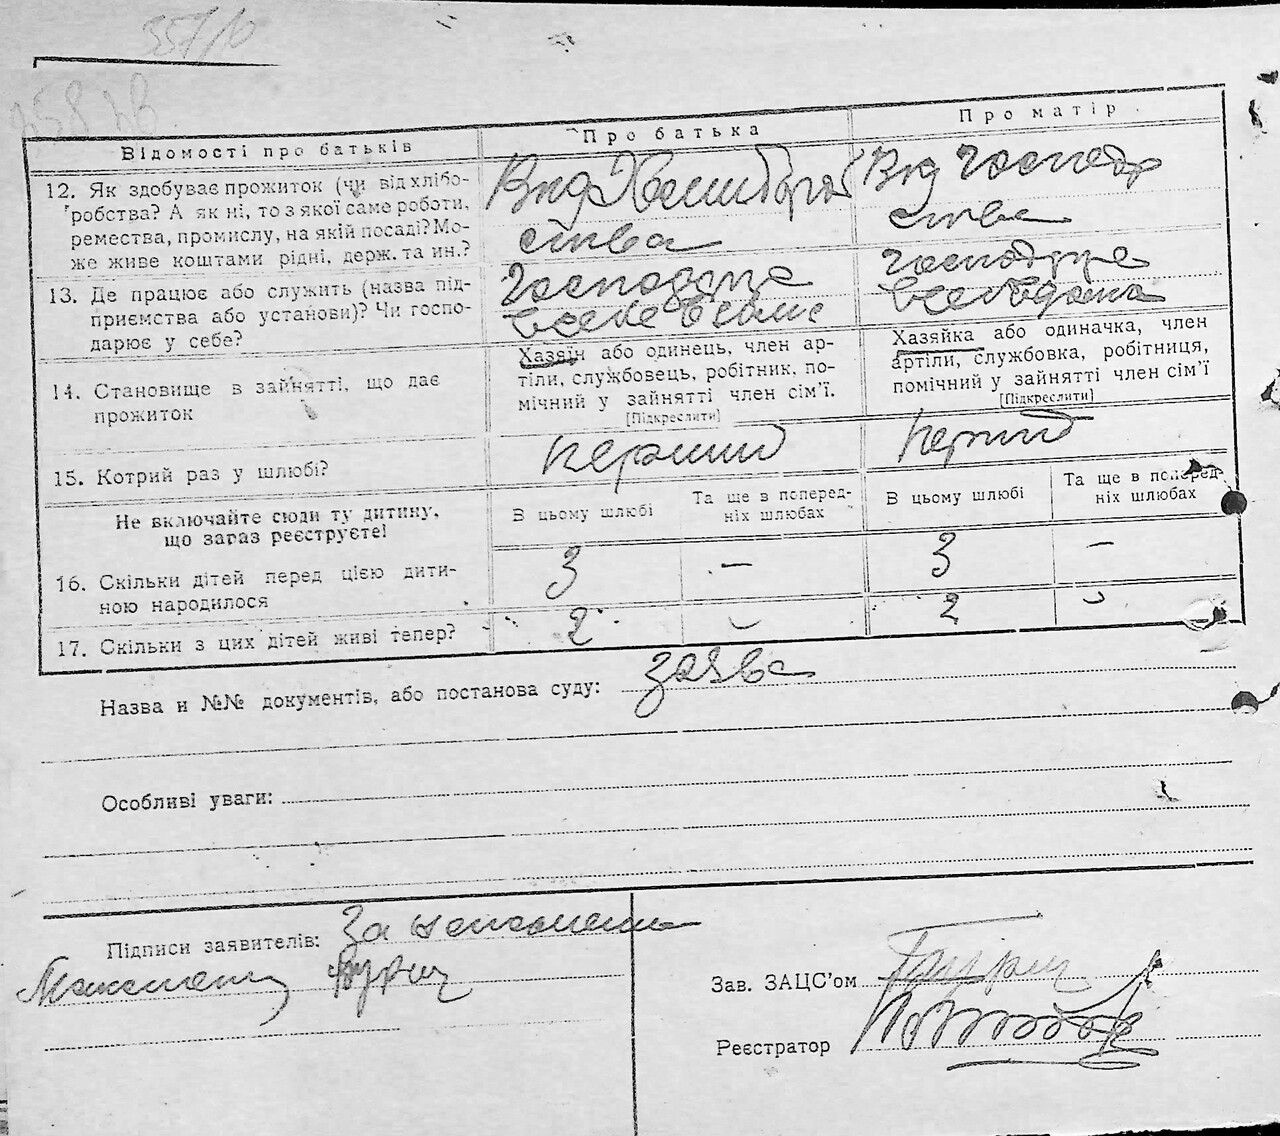 357/10
Відомості про батьків
Про батька
Про матір
12. Як здобуває прожиток (чи від хлібо-
робства? А як ні, то з якої саме роботи,
ремества, промислу, на якій посаді? Мо-
же живе коштами рідні, держ. та ин.?
Від Хлибороб
ства
Від Господр
ства
13. Де працює або служить (назва під-
приємства або установи)? Чи госпо-
дарює у себе?
Господрує
Господрує
14. Становище в зайнятті, що дає
прожиток
Хазяїн або одинець, член ар-
тіли, службовець, робітник, по-
мічний у зайнятті член сім’ї.
[Підкреслити]
Хазяйка або одиначка, член
артіли, службовка, робітниця,
помічний у зайнятті член сім’ї
[Підкреслити]
15. Котрий раз у шлюбі?
перший
Не включайте сюди ту дитину,
що зараз реєструєте!
В цьому шлюбі
Та ще в поперед-
ніх шлюбах
В цьому шлюбі
Та ще в поперед-
ніх шлюбах
16. Скільки дітей перед цією дити-
ною народилося
3 – 3 –
17. Скільки з цих дітей живі тепер?
2 – 2 –
Назва и №№ документів, або постанова суду: заява
Особливі уваги:
Підписи заявителів: За
Зав. ЗАЦС’ом
Реєстратор